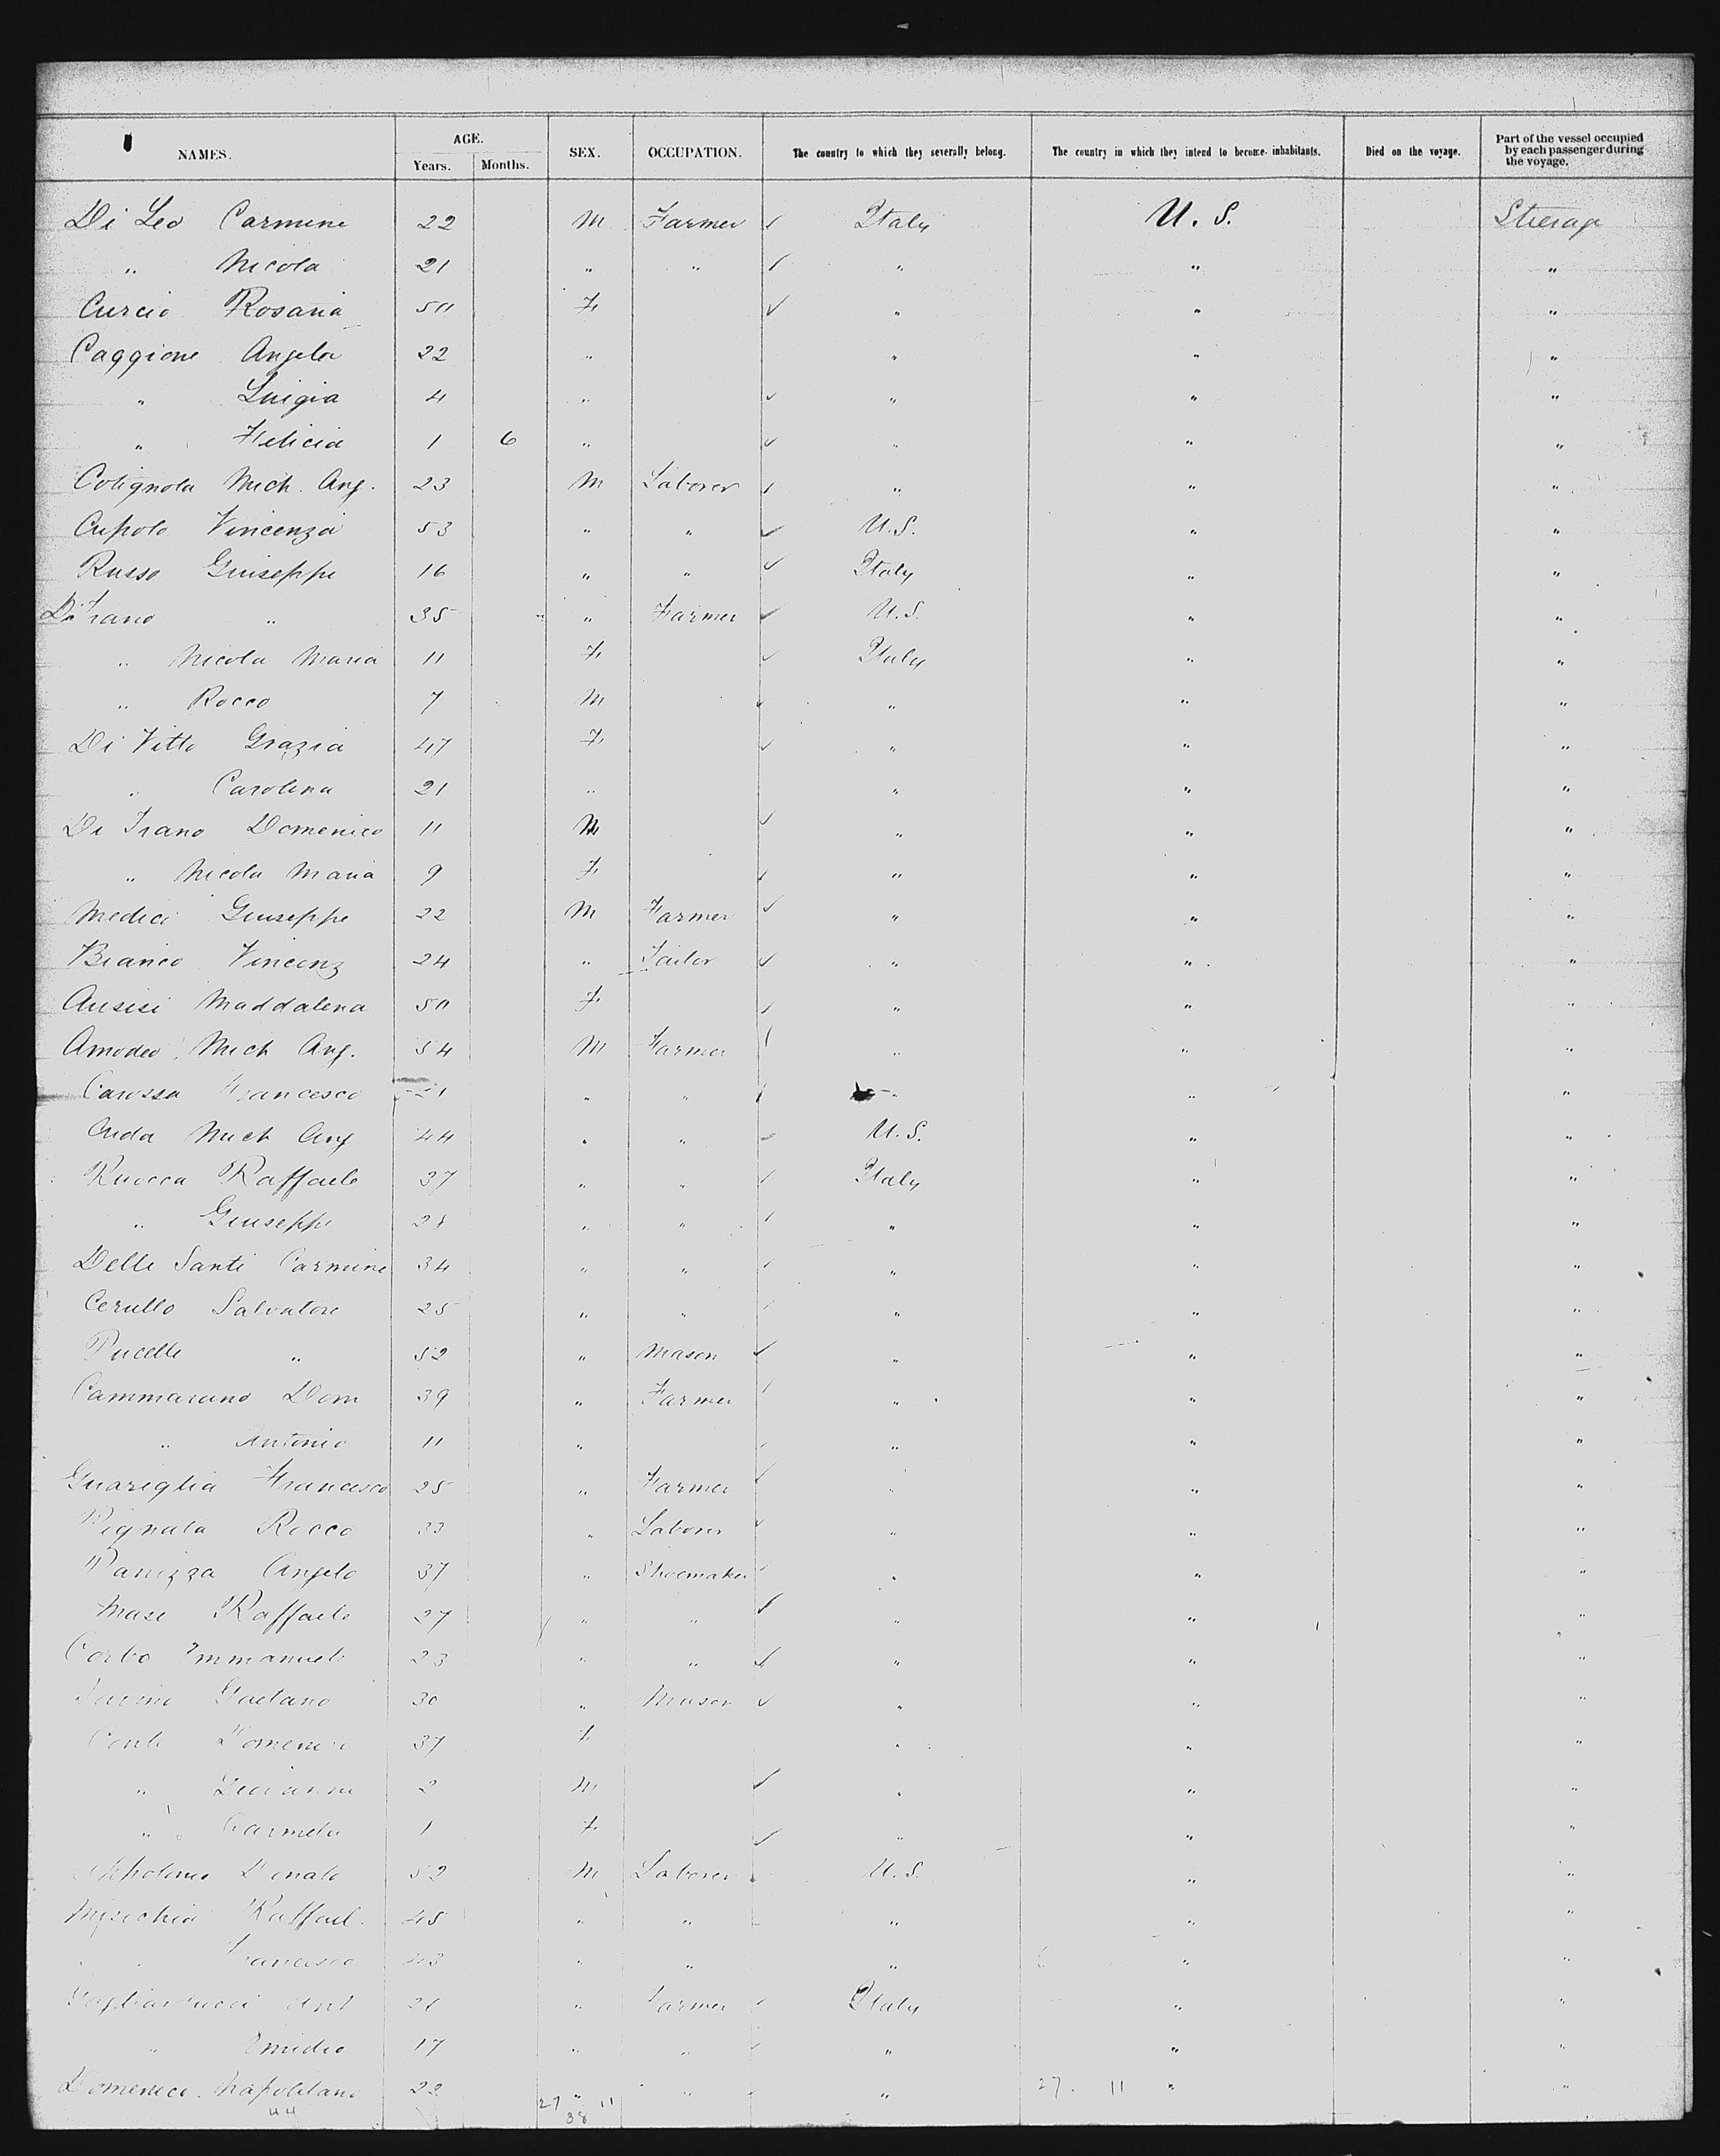 NAMES. AGE. Years. Months. SEX. OCCUPATION. The country to which they severally belong. The country in which they intend to become inhabitants. Died on the voyage. Part of the vessel occupied by each passenger during the voyage.
Di Leo Carmine 22 M Farmer ✓ Italy U. S. Steerage
" Nicola 21 " " ✓ " " "
Curcio Rosaria 50 F ✓ " " "
Caggione Angela 22 " " " "
" Luigia 4 " ✓ " " "
" Felicia 1 6 " ✓ " " "
Cotignola Mich. Ang. 23 M Laborer ✓ " " "
Cupolo Vincenza 53 " " ✓ U.S. " "
Russo Giuseppe 16 " " ✓ Italy " "
Di Trano " 35 " Farmer ✓ U.S. " "
" Nicola Maria 11 F ✓ Italy " "
" Rocco 7 M ✓ " " "
Di Vitto Grazia 47 F ✓ " " "
" Carolina 21 " " " "
Di Trano Domenico 11 M ✓ " " "
" Nicola Maria 9 F ✓ " " "
Medici Giuseppe 22 M Farmer ✓ " " "
Bianco Vincenz 24 " Tailor ✓ " " "
Ausisi Maddalena 50 F ✓ " " "
Amodeo Mich Ang. 54 M Farmer ✓ " " "
Carossa Francesco " " ✓ " "
Cuda Mich Ang 44 " " ✓ U.S. " "
Ruocca Raffaele 37 " " ✓ Italy " "
" Giuseppe " " ✓ " " "
Delle Santi Carmine 34 " " ✓ " " "
Cerullo Salvatore 25 " " ✓ " " "
Pucelle " 52 " Mason ✓ " " "
Cammarano Dom 39 " Farmer ✓ " " "
" Antonio 11 " ✓ " " "
Guariglia Francesco 25 " Farmer ✓ " " "
Pignata Rocco 33 " Laborer ✓ " " "
Panizza Angelo 37 " Shoemaker ✓ " " "
Masi Raffaele 27 " " ✓ " " "
Corbo Immanuele 23 " " ✓ " " "
Gaetano 30 " Mason ✓ " " "
Conte Domenica 37 F " " "
" Giovanni 2 M ✓ " " "
" Carmela 1 F ✓ " " "
Donato 52 M Laborer U.S. " "
Raffael. 45 " " " " "
" Francesco 43 " " " " "
Gagliarducci Ant 21 " Farmer ✓ Italy " "
" Emidio 17 " " ✓ " " "
Domenico Napolitano 22 " " ✓ " 27. 11 " "
44 27 11
38